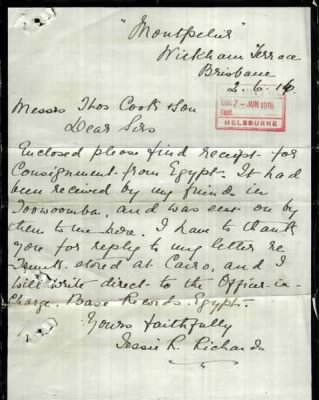 "Montpelier"
Wickham Terrace
Brisbane
2.6.16
7 - JUN 1916
MELBOURNE
Messrs Thos Cook & Son
Dear Sirs
Enclosed please find receipt for
Consignment from Egypt. It had
been received by my friends in
Toowoomba, and was sent on by
them to me here. I have to thank
you for reply to my letter re
Trunk stored at Cairo, and I
will write direct to the Officer-in-
Charge, Base Records, Egypt.
Yours faithfully
Jessie R. Richards